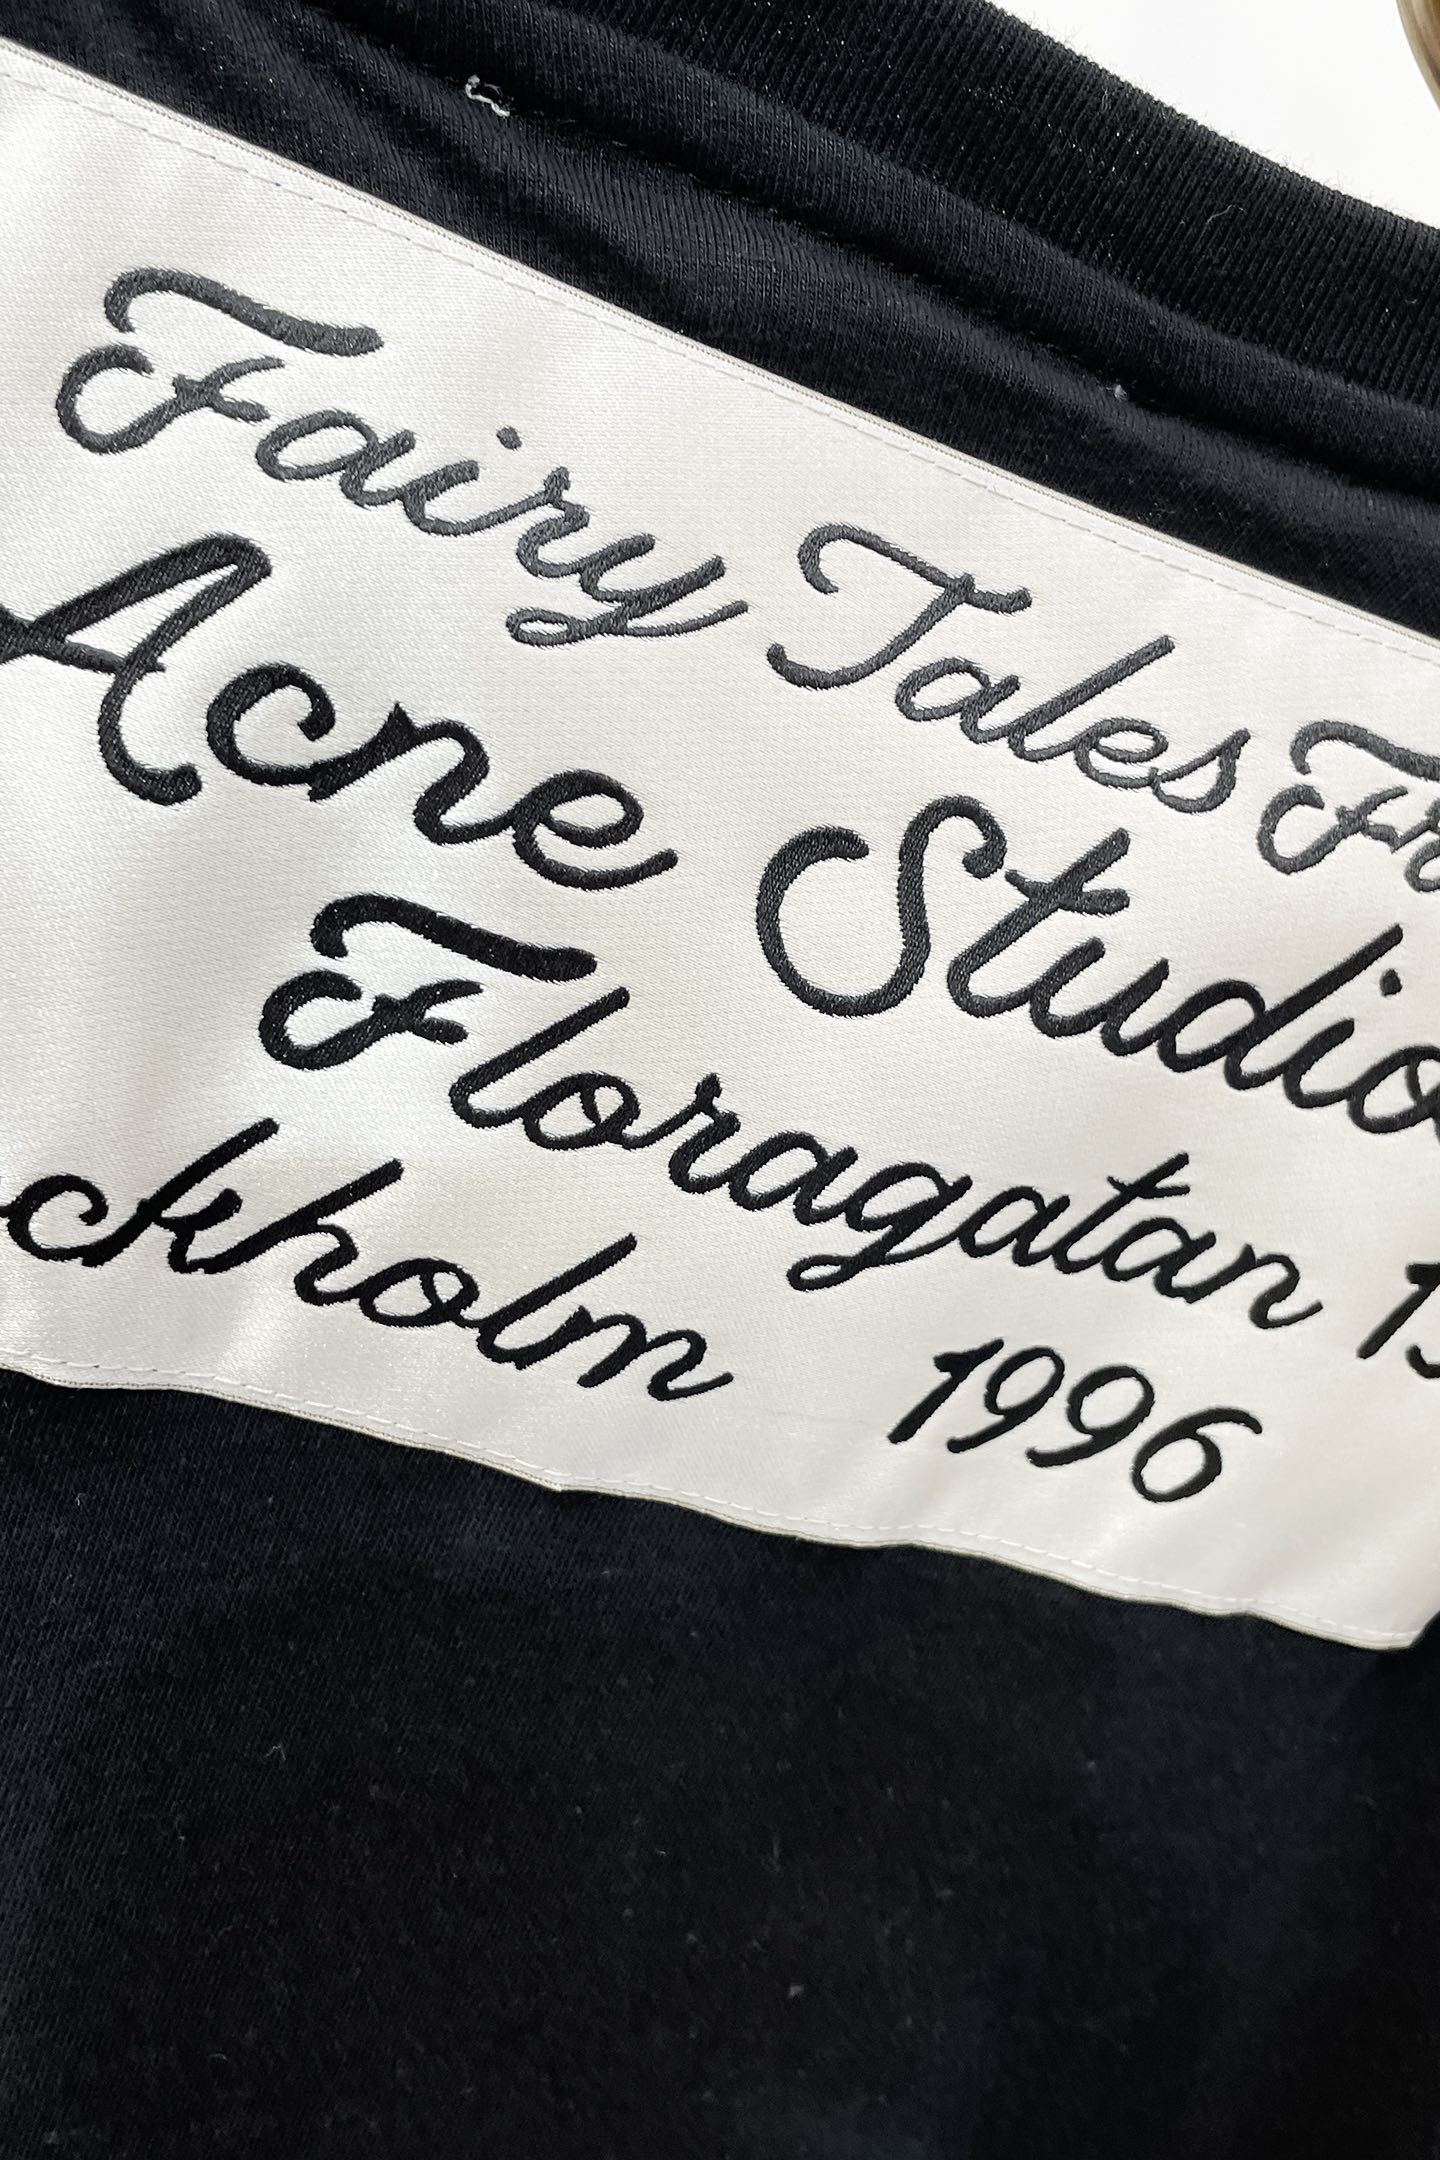 Fairy Tales Fr
Acne Studio
Floragatan 1
ckholm 1996